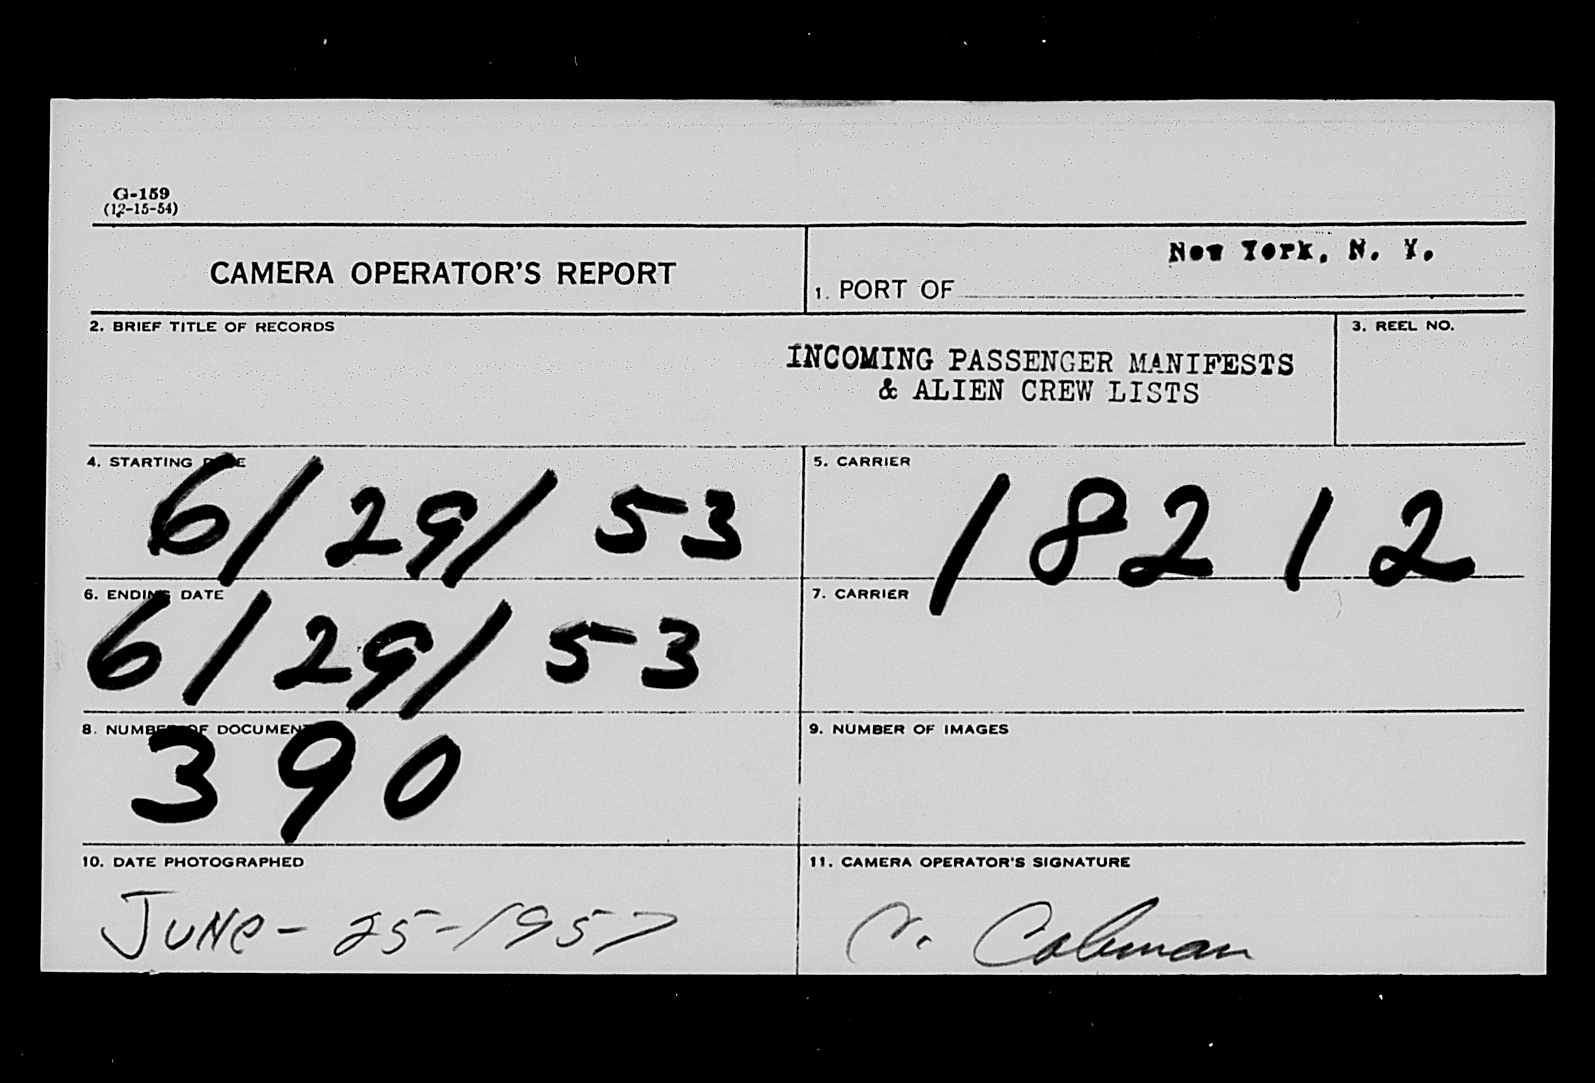 G-159
(12-15-54)
CAMERA OPERATOR'S REPORT
1. PORT OF New York, N. Y.
2. BRIEF TITLE OF RECORDS
INCOMING PASSENGER MANIFESTS
& ALIEN CREW LISTS
3. REEL NO.
4. STARTING DATE
6/29/53
5. CARRIER
18212
6. ENDING DATE
6/29/53
7. CARRIER
8. NUMBER OF DOCUMENTS
390
9. NUMBER OF IMAGES
10. DATE PHOTOGRAPHED
JUNe - 25-1957
11. CAMERA OPERATOR'S SIGNATURE